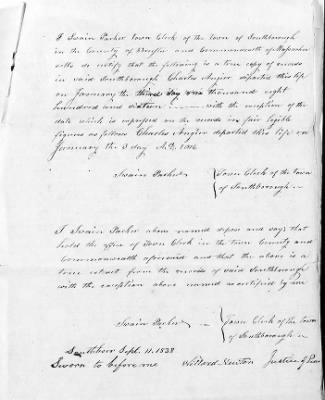 I Swain Parker Town Clerk of the town of Southborough
in the County of Worcester and Commonwealth of Massachu
setts do certify that the following is a true copy of records
in said Southborough Charles Angier departed this life
on January the third day one thousand eight
hundred and sixteen with the exception of the
date which is expressed on the records in fair legible
figures as follows Charles Angier departed this life on
January the 3 day A.D. 1816
Swain Parker { Town Clerk of the town
of Southborough
I Swain Parker above named depose and says that
hold the office of Town Clerk in the town County and
Commonwealth aforesaid and that the above is a
true extract from the records of said Southborough
with the exception above named as certified by me
Swain Parker { Town Clerk of the town
of Southborough
Southboro Sept. 11. 1838
Sworn to before me Willard Newton Justice of Peace